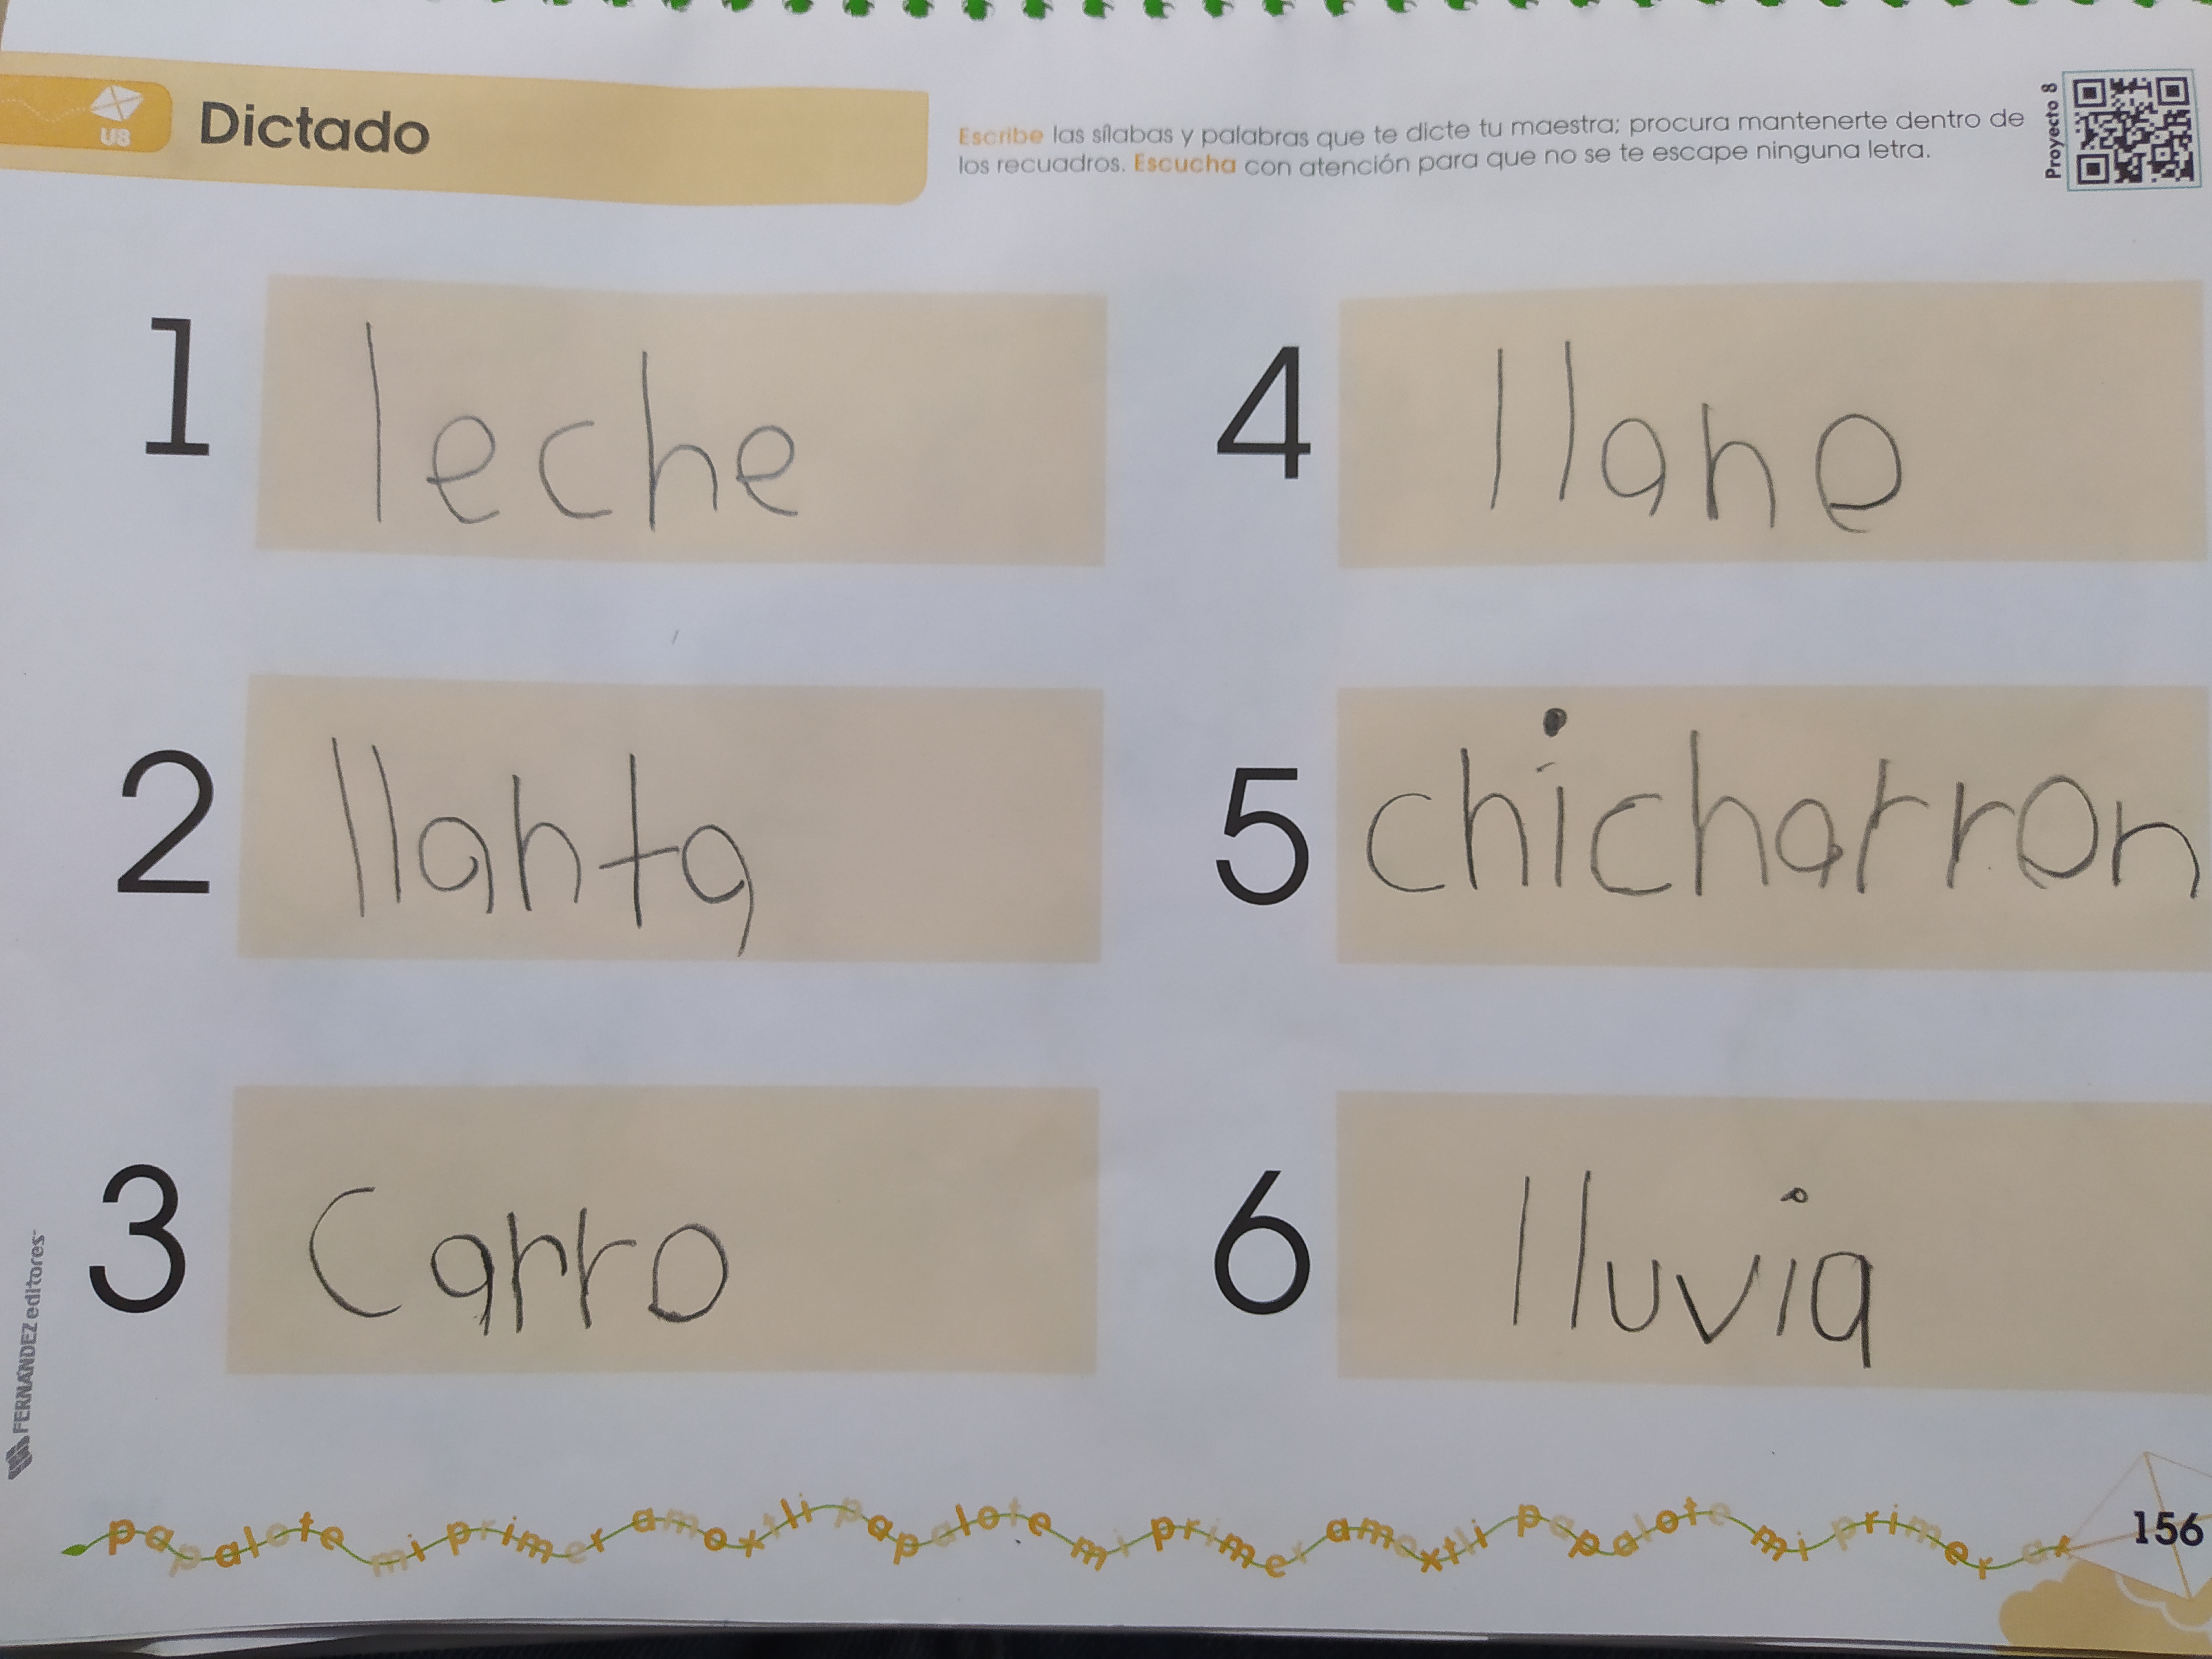 U8
Dictado
Escribe las sílabas y palabras que te dicte tu maestra; procura mantenerte dentro de
los recuadros. Escucha con atención para que no se te escape ninguna letra.
Proyecto 8
1 leche
2 llanta
3 Carro
4 llane
5 chicharron
6 lluvia
FERNÁNDEZ editores
papalote mi primer amoxtli papalote mi primer amoxtli papalote mi primer
156